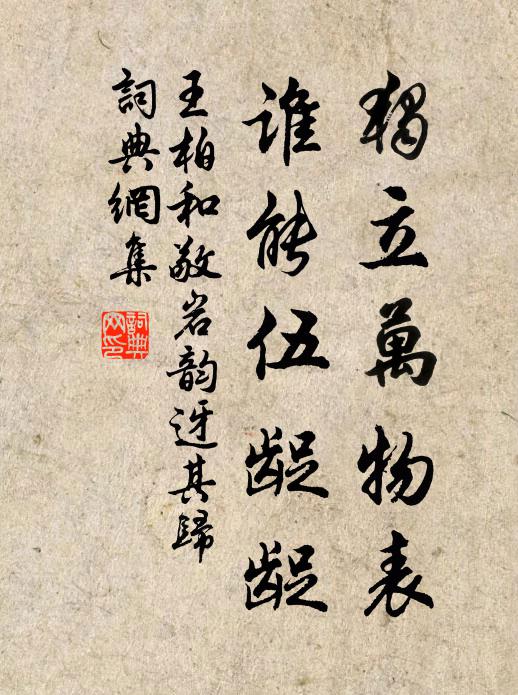 獨立萬物表
誰能伍齪齪
王柏和敬岩韵迓其歸
詞典網集
詞典網印